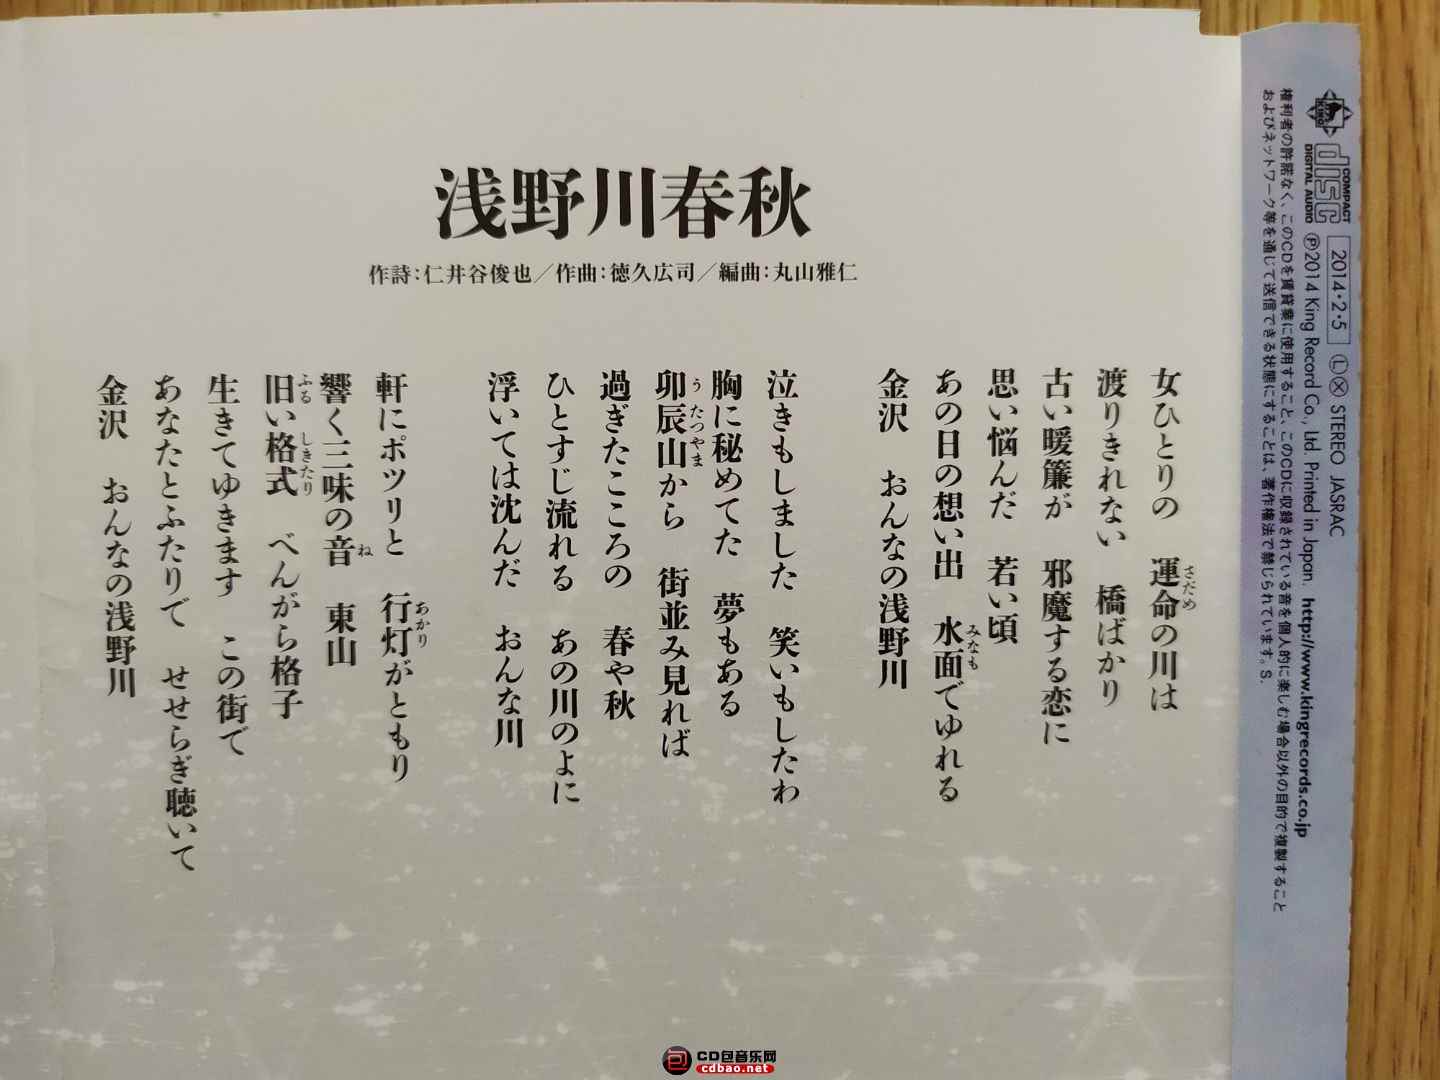 浅野川春秋
作詩:仁井谷俊也／作曲:徳久広司／編曲:丸山雅仁
女ひとりの　運命の川は
さだめ
渡りきれない　橋ばかり
古い暖簾が　邪魔する恋に
思い悩んだ　若い頃
あの日の想い出　水面でゆれる
みなも
金沢　おんなの浅野川
泣きもしました　笑いもしたわ
胸に秘めてた　夢もある
卯辰山から　街並み見れば
うたつやま
過ぎたこころの　春や秋
ひとすじ流れる　あの川のよに
浮いては沈んだ　おんな川
軒にポツリと　行灯がともり
あかり
響く三味の音　東山
ね
旧い格式　べんがら格子
ふる しきたり
生きてゆきます　この街で
あなたとふたりで　せせらぎ聴いて
金沢　おんなの浅野川
KING
COMPACT
disc
DIGITAL AUDIO
2014・2・5 Ⓛ Ⓧ STEREO JASRAC
Ⓟ2014 King Record Co., Ltd. Printed in Japan. http://www.kingrecords.co.jp
権利者の許諾なく、このCDを賃貸業に使用すること、このCDに収録されている音を個人的に楽しむ場合以外の目的で複製すること
およびネットワーク等を通じて送信できる状態にすることは、著作権法で禁じられています。S.
CD包音乐网
cdbao.net